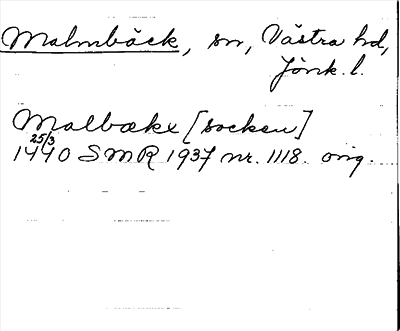 Malmbäck, sn, Västra hd,
Jönk. l.
Malbækx [socken]
25/3
1440 SMR 1937 nr. 1118. orig.